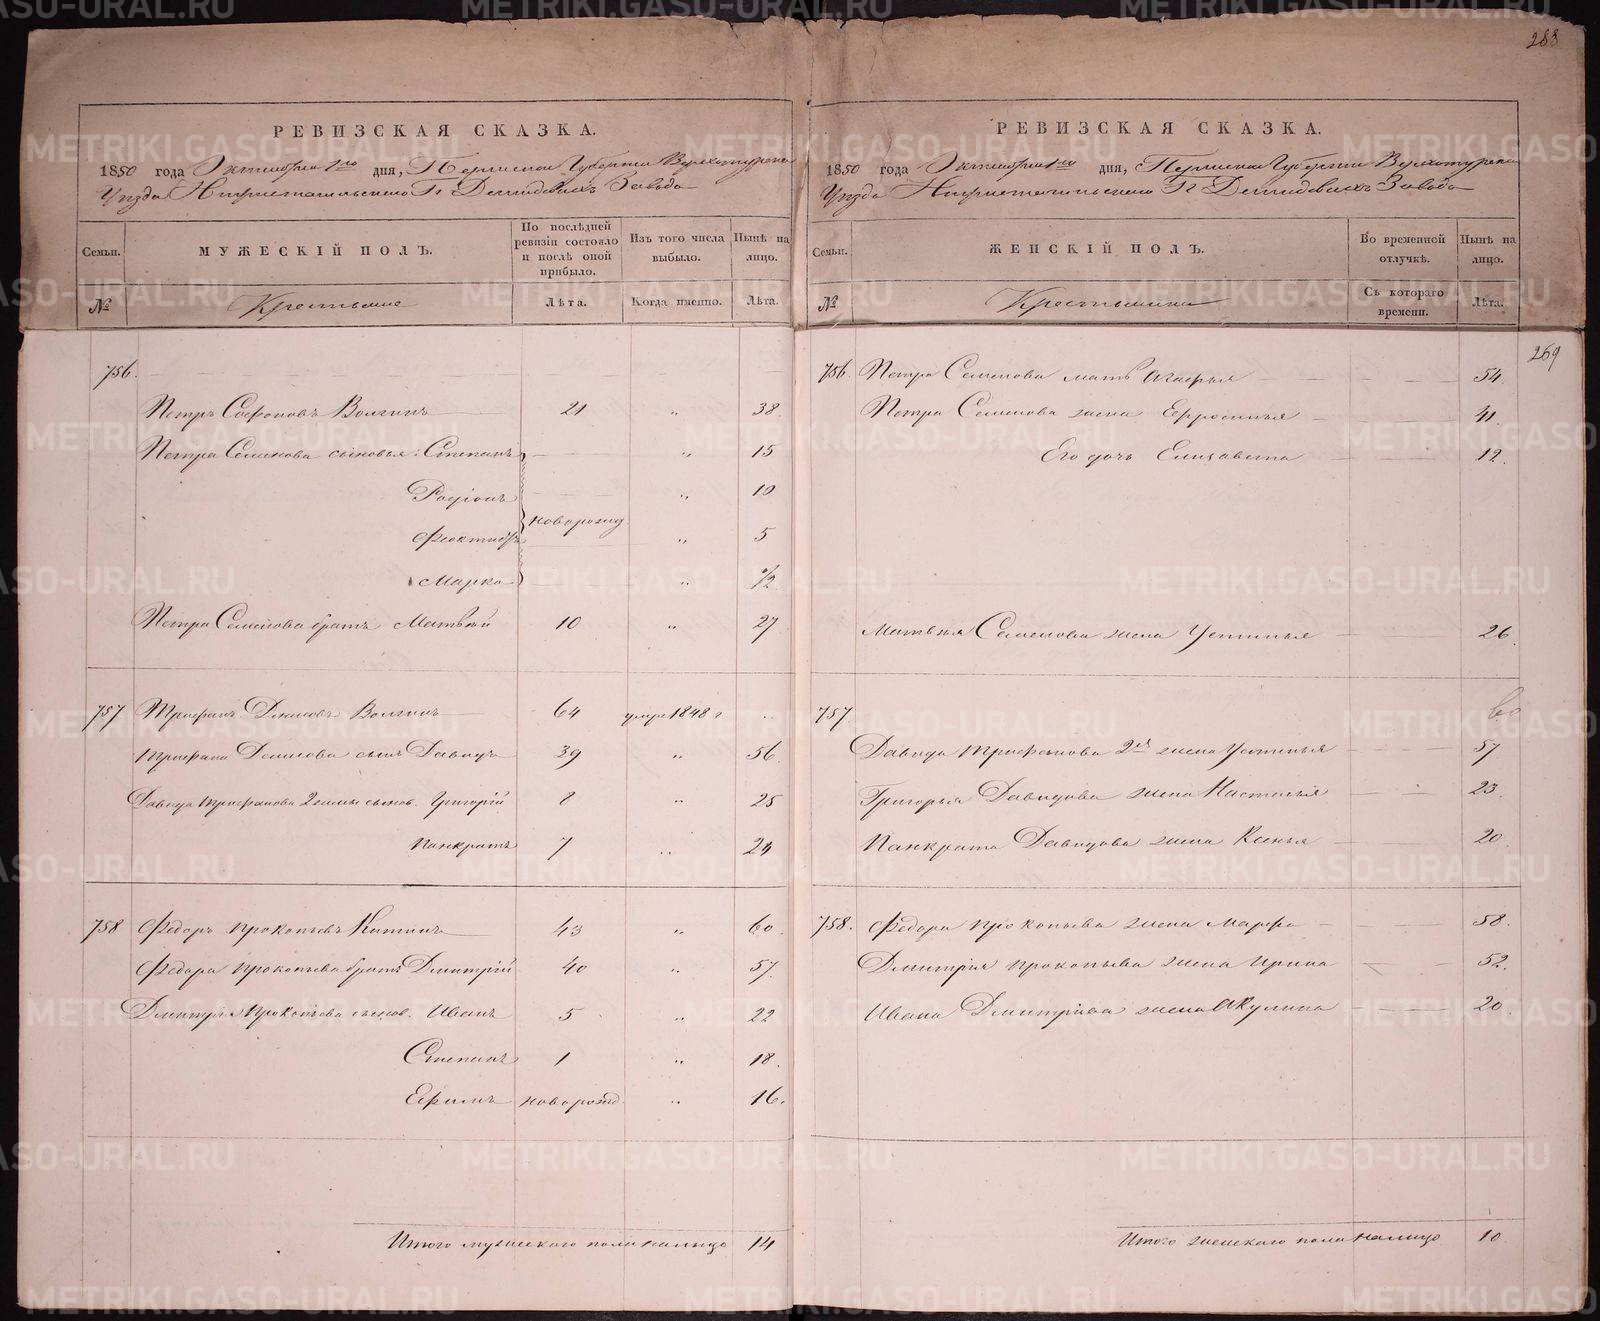 288
РЕВИЗСКАЯ СКАЗКА.
1850 года Октября 1го дня, Пермской Губернии Верхотурскаго
Уѣзда Нижнетагильскаго Гг Демидовыхъ Завода
Семьи. МУЖЕСКІЙ ПОЛЪ. По послѣдней ревизіи состояло и послѣ оной прибыло. Изъ того числа выбыло. Нынѣ на лицо.
№ Крестьяне Лѣта. Когда именно. Лѣта.
756.
Петръ Софоновъ Волгинъ 21 „ 38.
Петра Семенова сыновья: Степанъ „ 15
Родіонъ „ 10
новорожд
Феоктистъ „ 5
Марко „ 1/2
Петра Семенова братъ Матвѣй 10 „ 27
757 Трифанъ Денисовъ Волгинъ 64 умре 1848 г
Трифана Денисова сынъ Давидъ 39 „ 56.
Давида Трифанова 2 жены сынов. Григорій 8 „ 25
Панкратъ 7 „ 24
758 Федоръ Прокопьевъ Китинъ 43 „ 60.
Федора Прокопьева братъ Дмитрій 40 „ 57.
Дмитрія Прокопьева сынов. Иванъ 5 „ 22
Степанъ 1 „ 18.
Ефимъ новорожд „ 16.
Итого мужескаго пола налицо 14
РЕВИЗСКАЯ СКАЗКА.
1850 года Октября 1го дня, Пермской Губерніи Верхотурскаго
Уѣзда Нижнетагильскаго Гг Демидовыхъ Завода
Семьи. ЖЕНСКІЙ ПОЛЪ. Во временной отлучкѣ. Нынѣ на лицо.
№ Крестьянки Съ котораго времени. Лѣта.
269
756. Петра Семенова мать Агафья 54.
Петра Семенова жена Ефросинья 41.
Его дочь Елизавета 12.
Матвѣя Семенова жена Устинья 26.
757 60
Давида Трифанова 2я жена Устинья 57
Григорья Давидова жена Настасья 23.
Панкрата Давидова жена Ксенья 20.
758. Федора Прокопьева жена Марфа 58.
Дмитрія Прокопьева жена Ирина 52.
Ивана Дмитріева жена Акулина 20
Итого женскаго пола налицо 10
METRIKI.GASO-URAL.RU